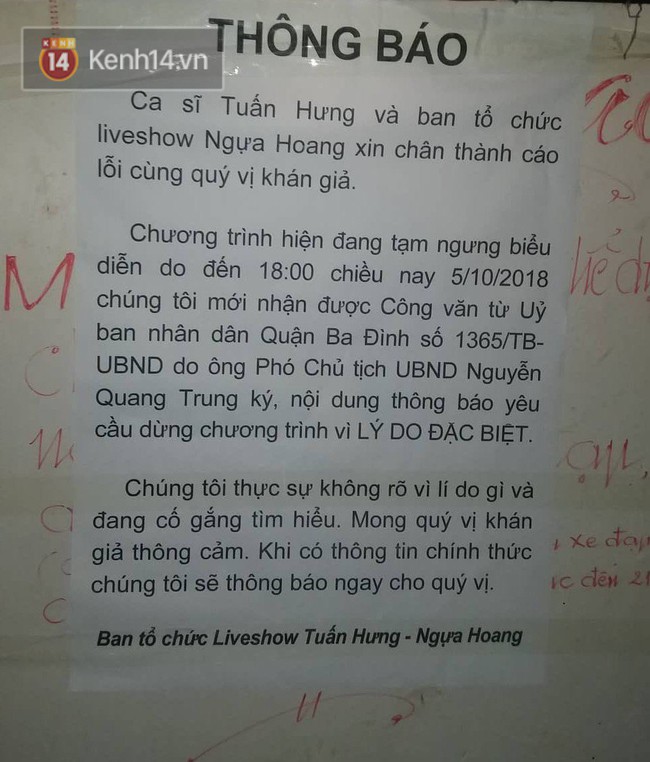 KENH
14
Kenh14.vn
THÔNG BÁO
Ca sĩ Tuấn Hưng và ban tổ chức
liveshow Ngựa Hoang xin chân thành cáo
lỗi cùng quý vị khán giả.
Chương trình hiện đang tạm ngưng biểu
diễn do đến 18:00 chiều nay 5/10/2018
chúng tôi mới nhận được Công văn từ Uỷ
ban nhân dân Quận Ba Đình số 1365/TB-
UBND do ông Phó Chủ tịch UBND Nguyễn
Quang Trung ký, nội dung thông báo yêu
cầu dừng chương trình vì LÝ DO ĐẶC BIỆT.
Chúng tôi thực sự không rõ vì lí do gì và
đang cố gắng tìm hiểu. Mong quý vị khán
giả thông cảm. Khi có thông tin chính thức
chúng tôi sẽ thông báo ngay cho quý vị.
Ban tổ chức Liveshow Tuấn Hưng - Ngựa Hoang
M
xe đạp
đến 2